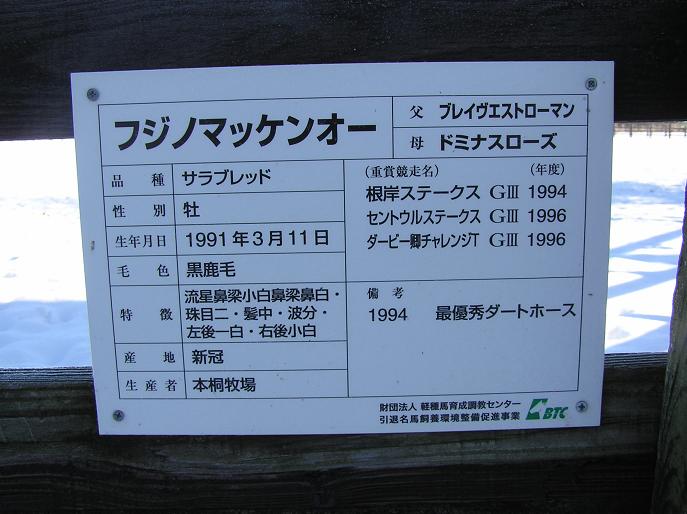 フジノマッケンオー
父 ブレイヴエストローマン
母 ドミナスローズ
品種 サラブレッド
性別 牡
生年月日 1991年3月11日
毛色 黒鹿毛
特徴 流星鼻梁小白鼻梁鼻白・
珠目二・髪中・波分・
左後一白・右後小白
産地 新冠
生産者 本桐牧場
(重賞競走名) (年度)
根岸ステークス GⅢ 1994
セントウルステークス GⅢ 1996
ダービー卿チャレンジT GⅢ 1996
備考
1994 最優秀ダートホース
財団法人 軽種馬育成調教センター
引退名馬飼養環境整備促進事業 BTC